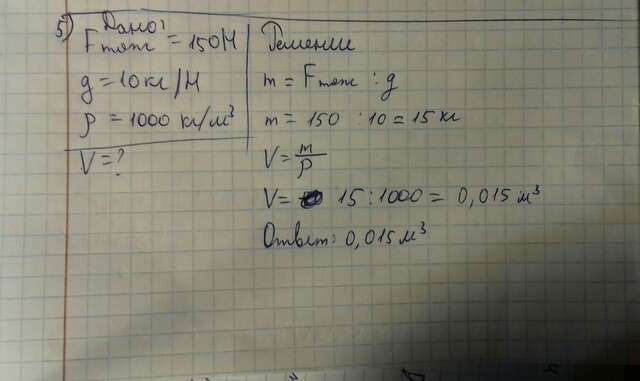 5) Дано:
Fтяж = 150Н
g = 10кг/Н
ρ = 1000 кг/м³
V = ?
Решение
m = Fтяж : g
m = 150 : 10 = 15 кг
V = m/ρ
V = 15 : 1000 = 0,015 м³
Ответ: 0,015 м³